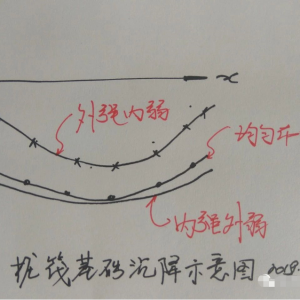 x
外强内弱
均匀布
内强外弱
桩筏基础沉降示意图 2019.